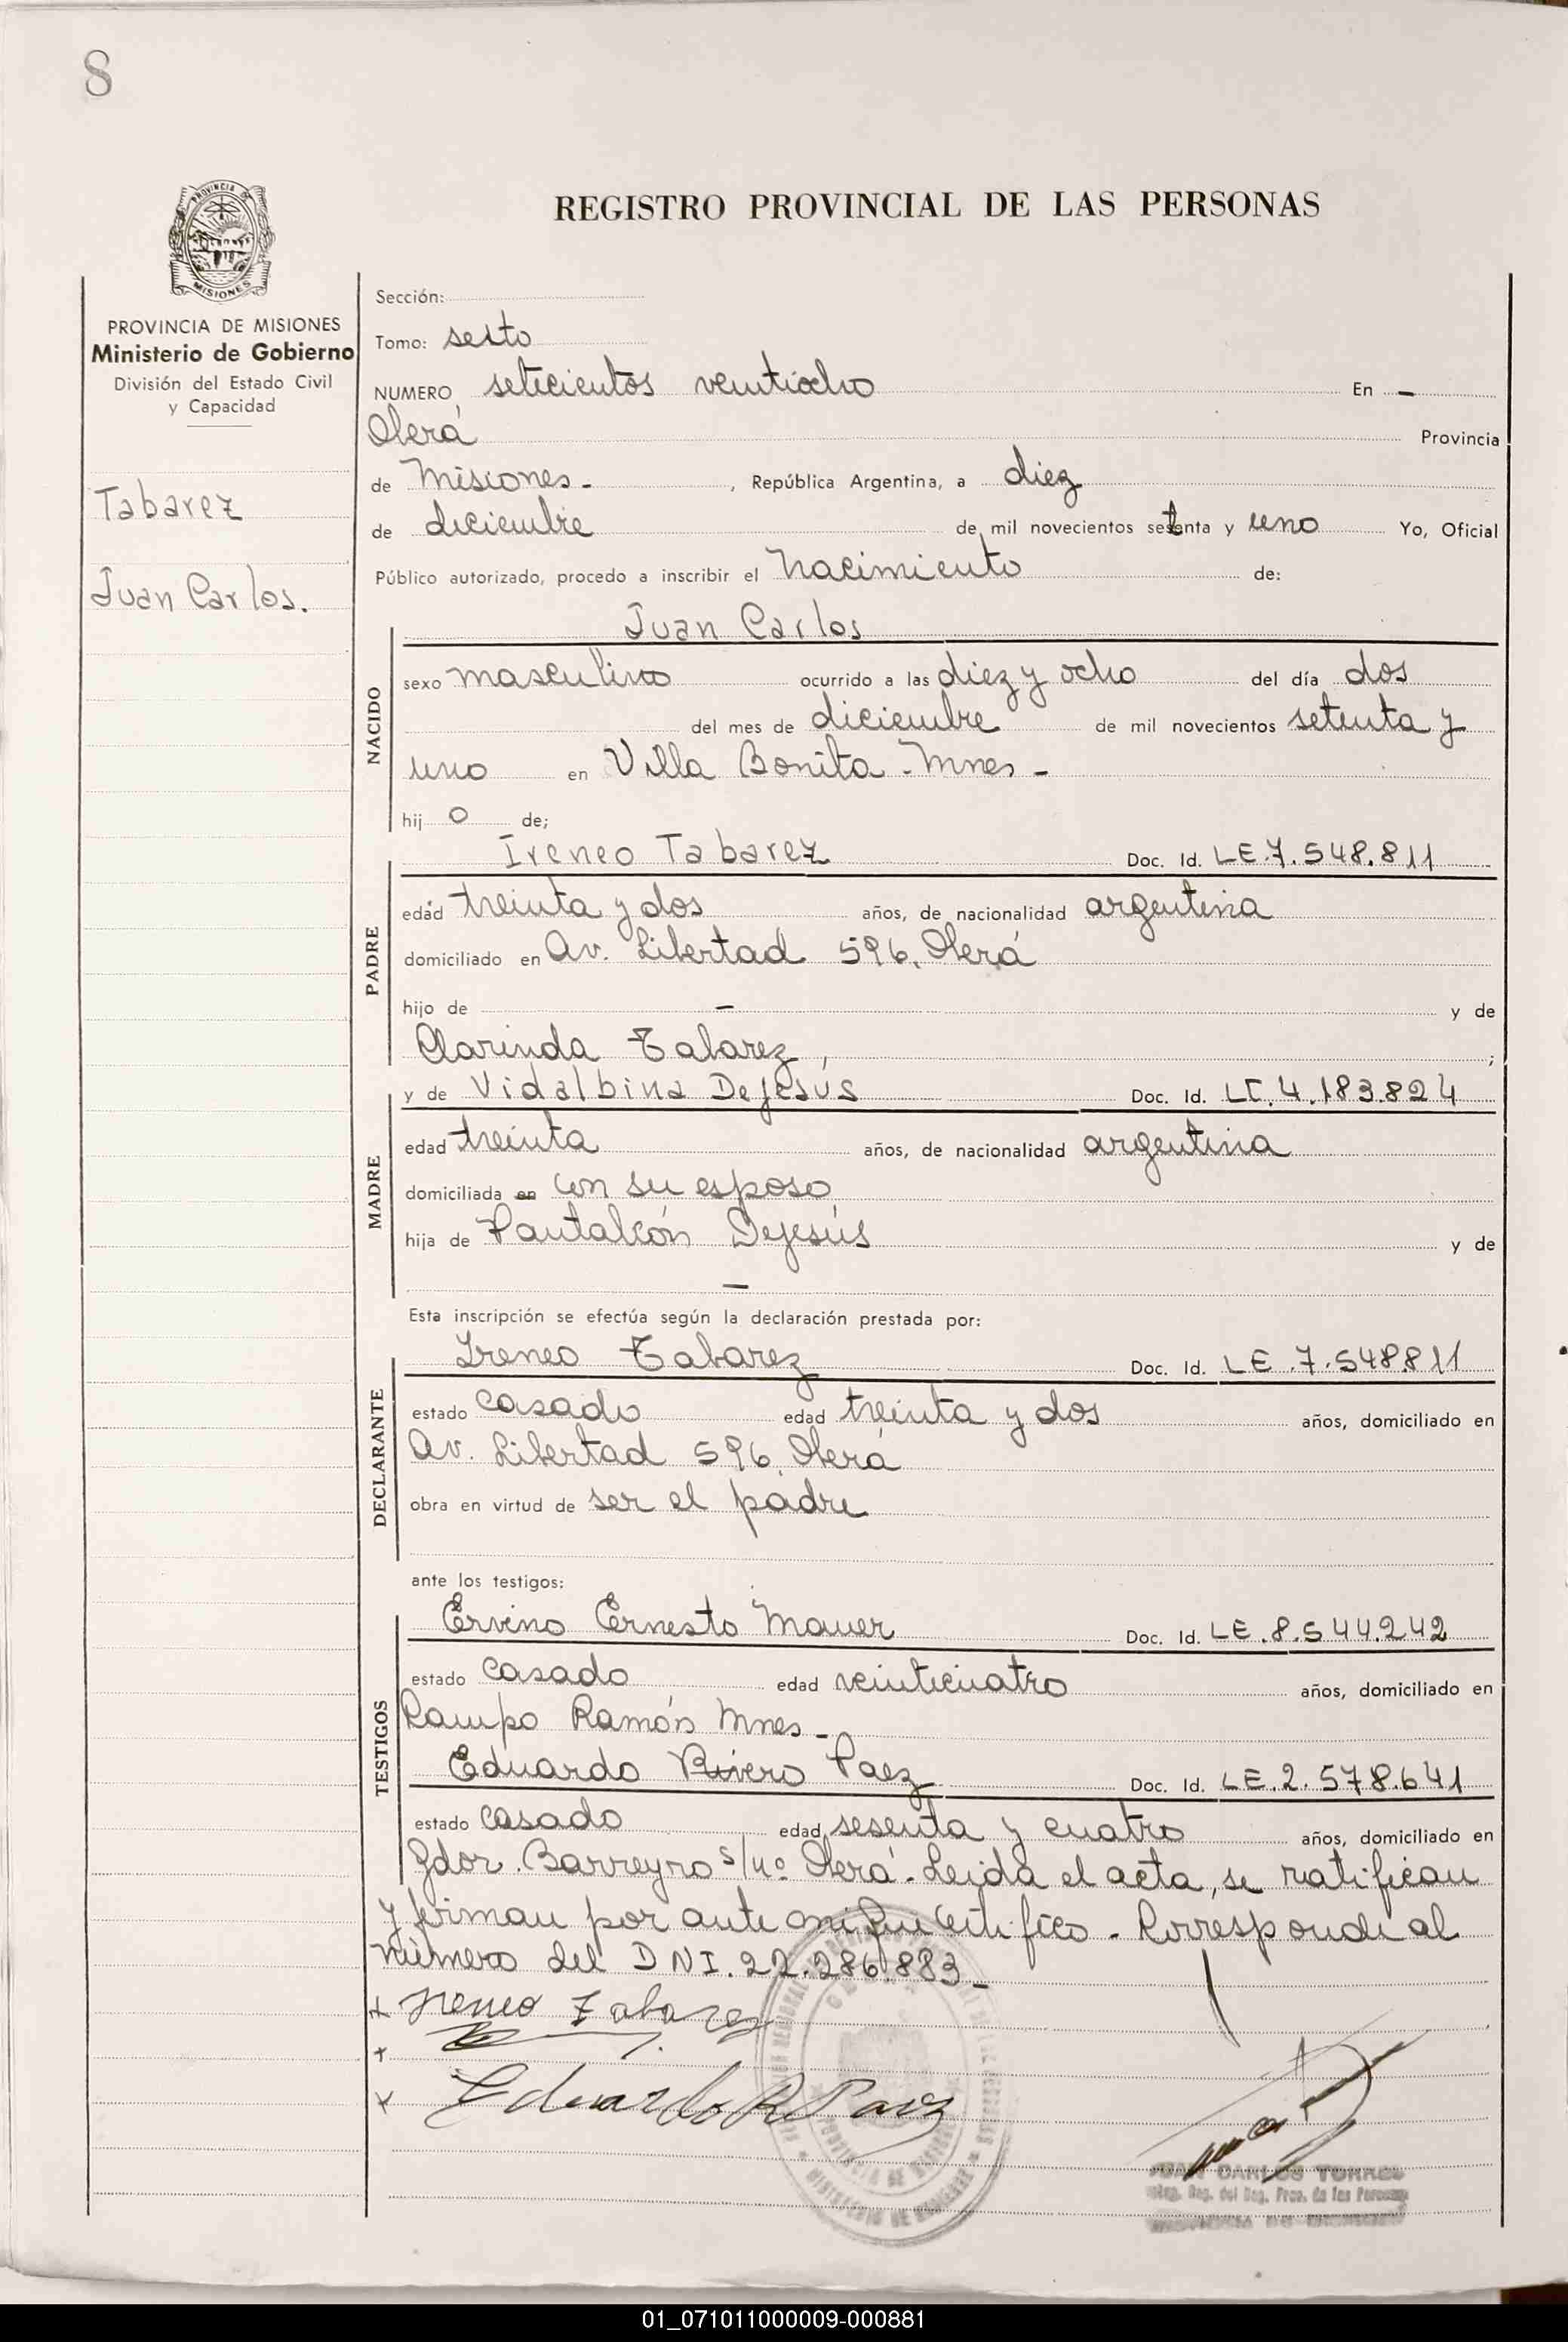 8
REGISTRO PROVINCIAL DE LAS PERSONAS
PROVINCIA DE
MISIONES
PROVINCIA DE MISIONES
Ministerio de Gobierno
División del Estado Civil
y Capacidad
Tabarez
Juan Carlos.
Sección:
Tomo: sexto
NUMERO setecientos veintiocho En -
Oberá Provincia
de Misiones - , República Argentina, a diez
de diciembre de mil novecientos setenta y uno Yo, Oficial
Público autorizado, procedo a inscribir el nacimiento de:
Juan Carlos
NACIDO
sexo masculino ocurrido a las diez y ocho del día dos
del mes de diciembre de mil novecientos setenta y
uno en Villa Bonita - Mnes -
hij o de;
PADRE
Ireneo Tabarez Doc. Id. LE.7.548.811
edad treinta y dos años, de nacionalidad argentina
domiciliado en Av. Libertad 596. Oberá
hijo de - y de
Clarinda Tabarez, ;
MADRE
y de Vidalbina Dejesús Doc. Id. LC.4.183.824
edad treinta años, de nacionalidad argentina
domiciliada en con su esposo
hija de Pantaleón Dejesús y de
-
Esta inscripción se efectúa según la declaración prestada por:
DECLARANTE
Ireneo Tabarez Doc. Id. LE.7.548.811
estado casado edad treinta y dos años, domiciliado en
Av. Libertad 596. Oberá
obra en virtud de ser el padre
ante los testigos:
TESTIGOS
Ervino Ernesto Mauer Doc. Id. LE.8.544.242
estado casado edad veinticuatro años, domiciliado en
Campo Ramón Mnes -
Eduardo Rivero Paez Doc. Id. LE.2.578.641
estado casado edad sesenta y cuatro años, domiciliado en
Gdor. Barreyro s/nº Oberá. Leida el acta, se ratifican
y firman por ante mi que certifico - Corresponde al
número del DNI. 22.286.883 -
+ Ireneo Tabarez
+
x Eduardo R Paez
PROVINCIA DE MISIONES
MINISTERIO DE GOBIERNO
JUAN CARLOS TORRES
del Reg. Prov. de las Personas
01_071011000009-000881